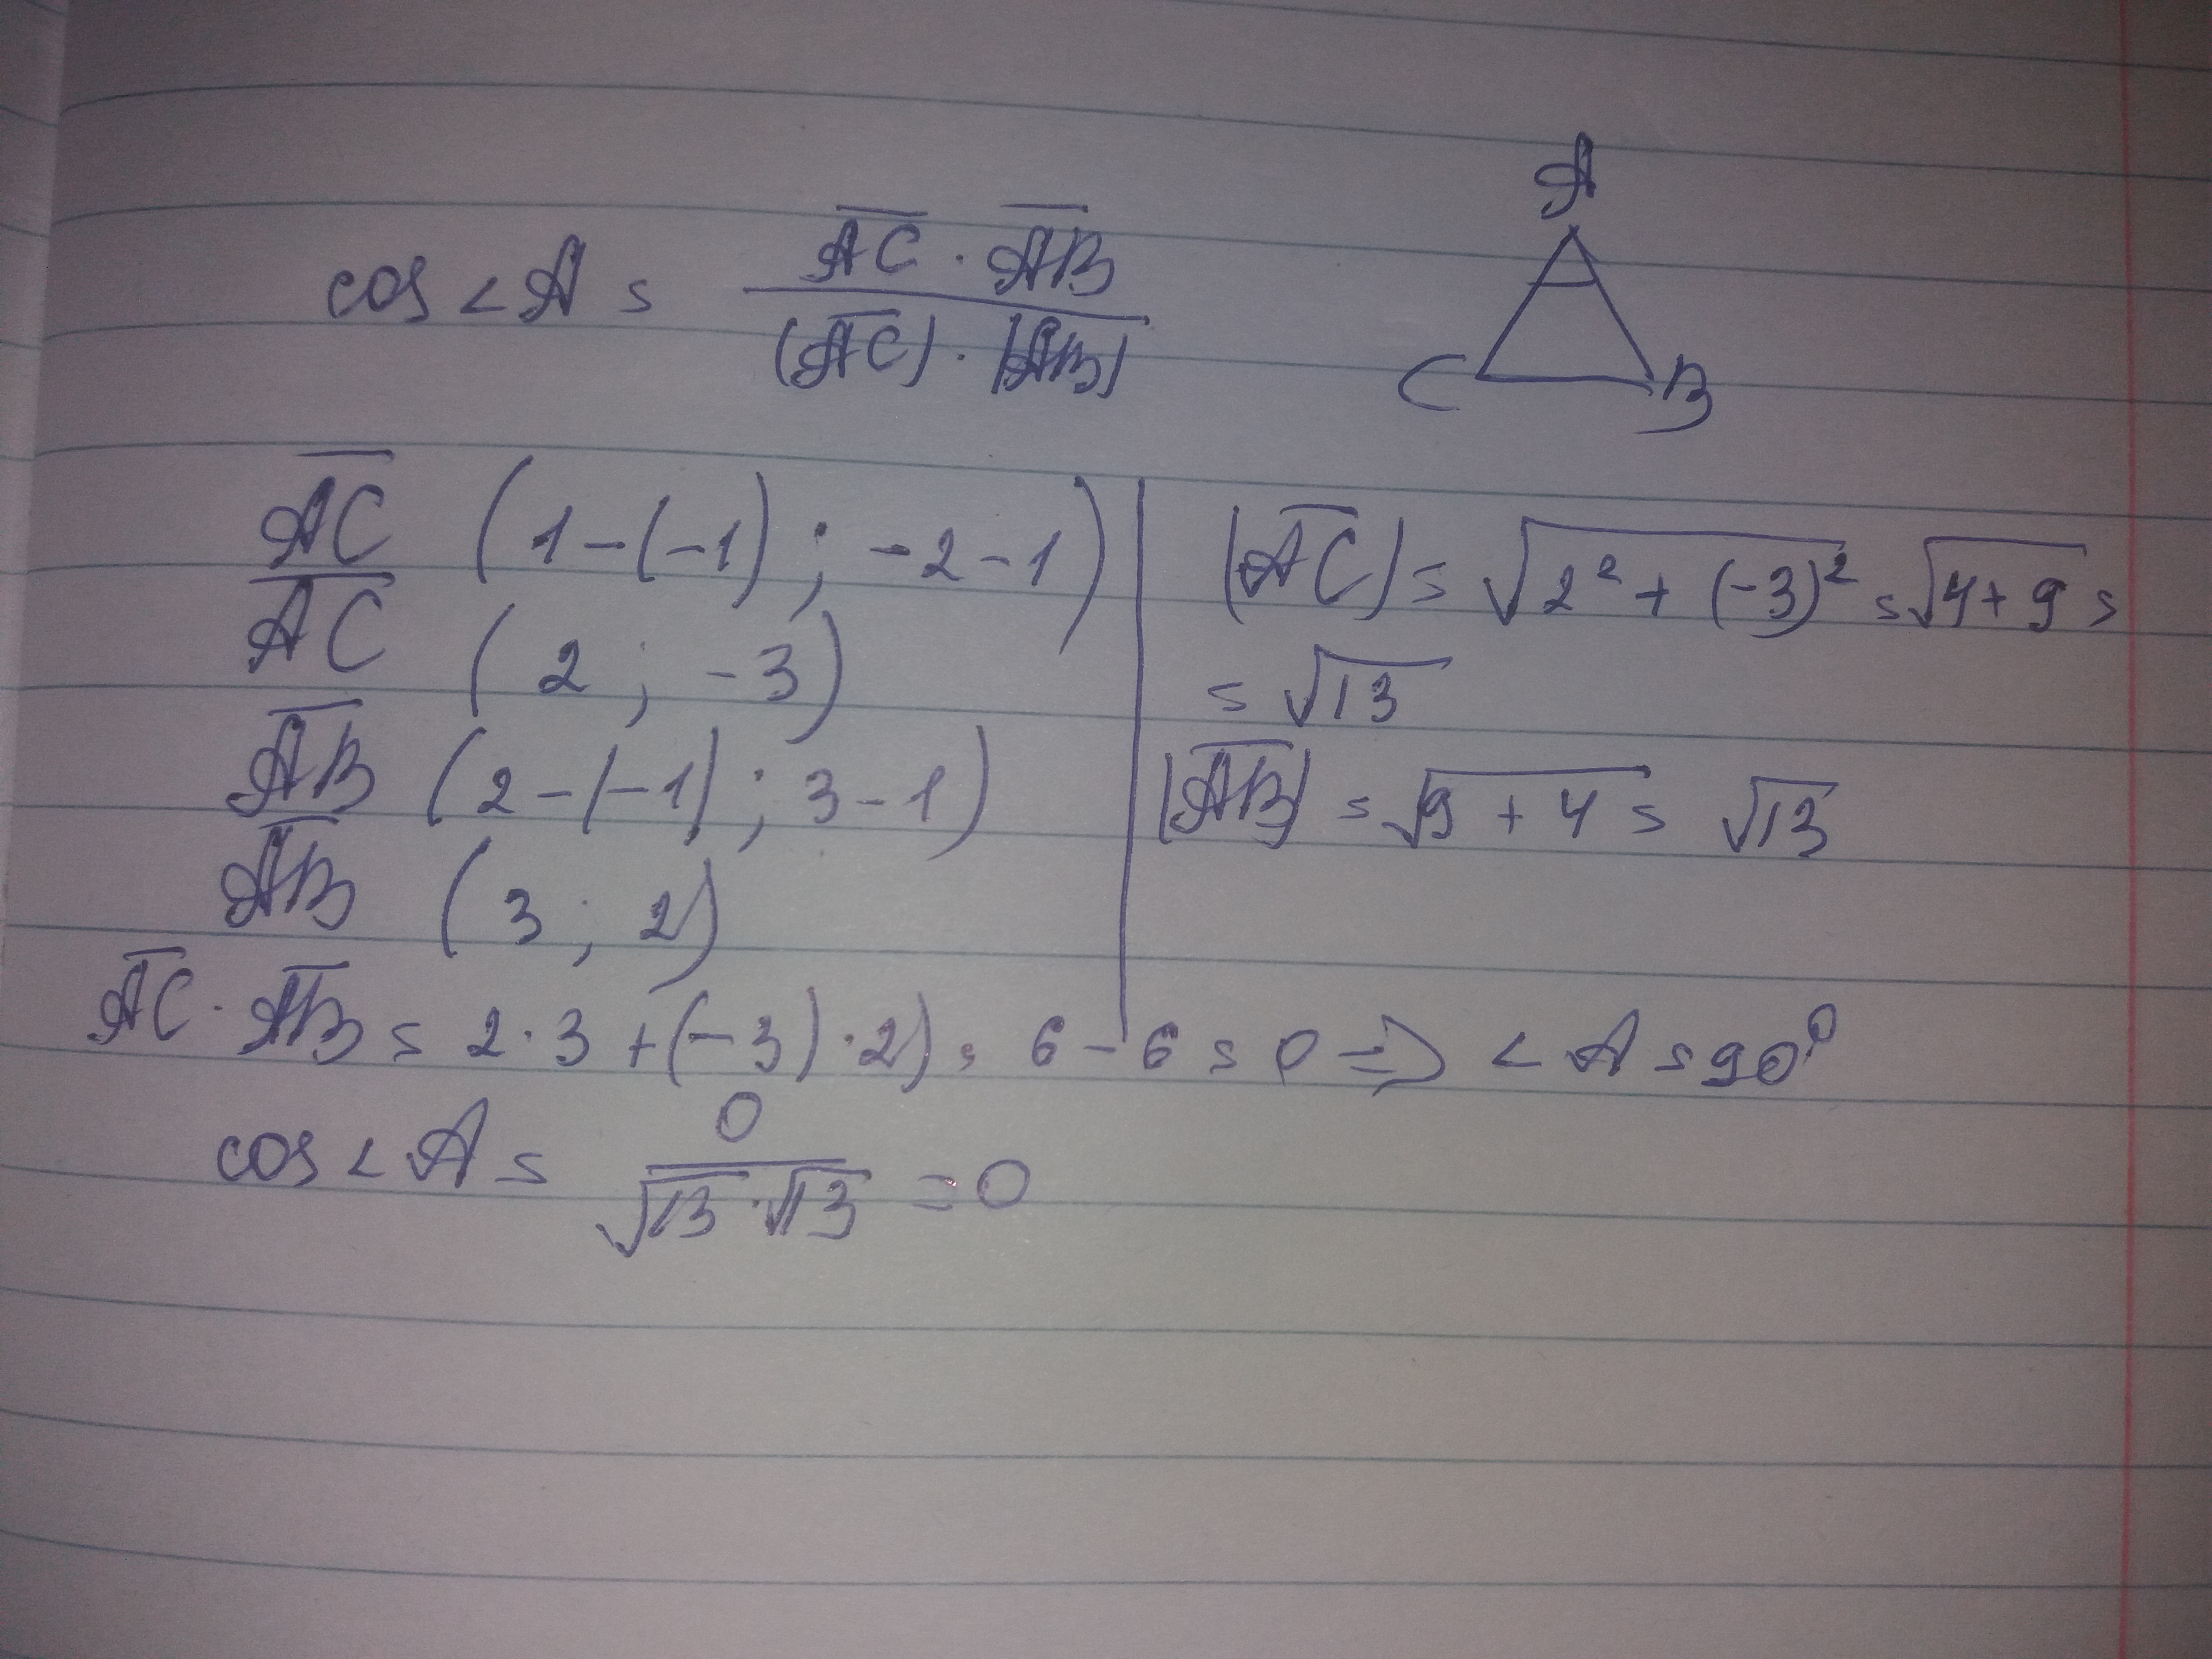 A
cos < A = AC · AB / |AC| · |AB|
C B
AC (1-(-1); -2-1)
AC (2; -3)
AB (2-(-1); 3-1)
AB (3; 2)
|AC| = √2² + (-3)² = √4+9 =
= √13
|AB| = √9+4 = √13
AC · AB = 2·3 + (-3)·2) = 6-6 = 0 => < A = 90⁰
cos < A = 0 / √13 · √13 = 0